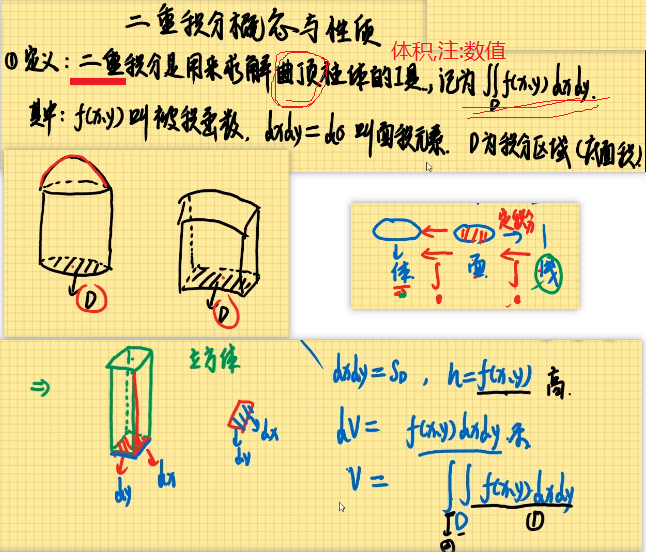 二重积分概念与性质
体积,注:数值
①定义:二重积分是用来求解曲顶柱体的工具,记为∬_D f(x,y)dxdy.
其中:f(x,y)叫被积函数,dxdy=dσ叫面积元素. D为积分区域(底面积)
D
D
定积分
体 ∫ 面 ∫ 线
⇒ 立方体
dy dx
dy dx
dxdy=S_D, h=f(x,y) 高.
dV= f(x,y)dxdy
V= ∬_D f(x,y)·dxdy
② ①